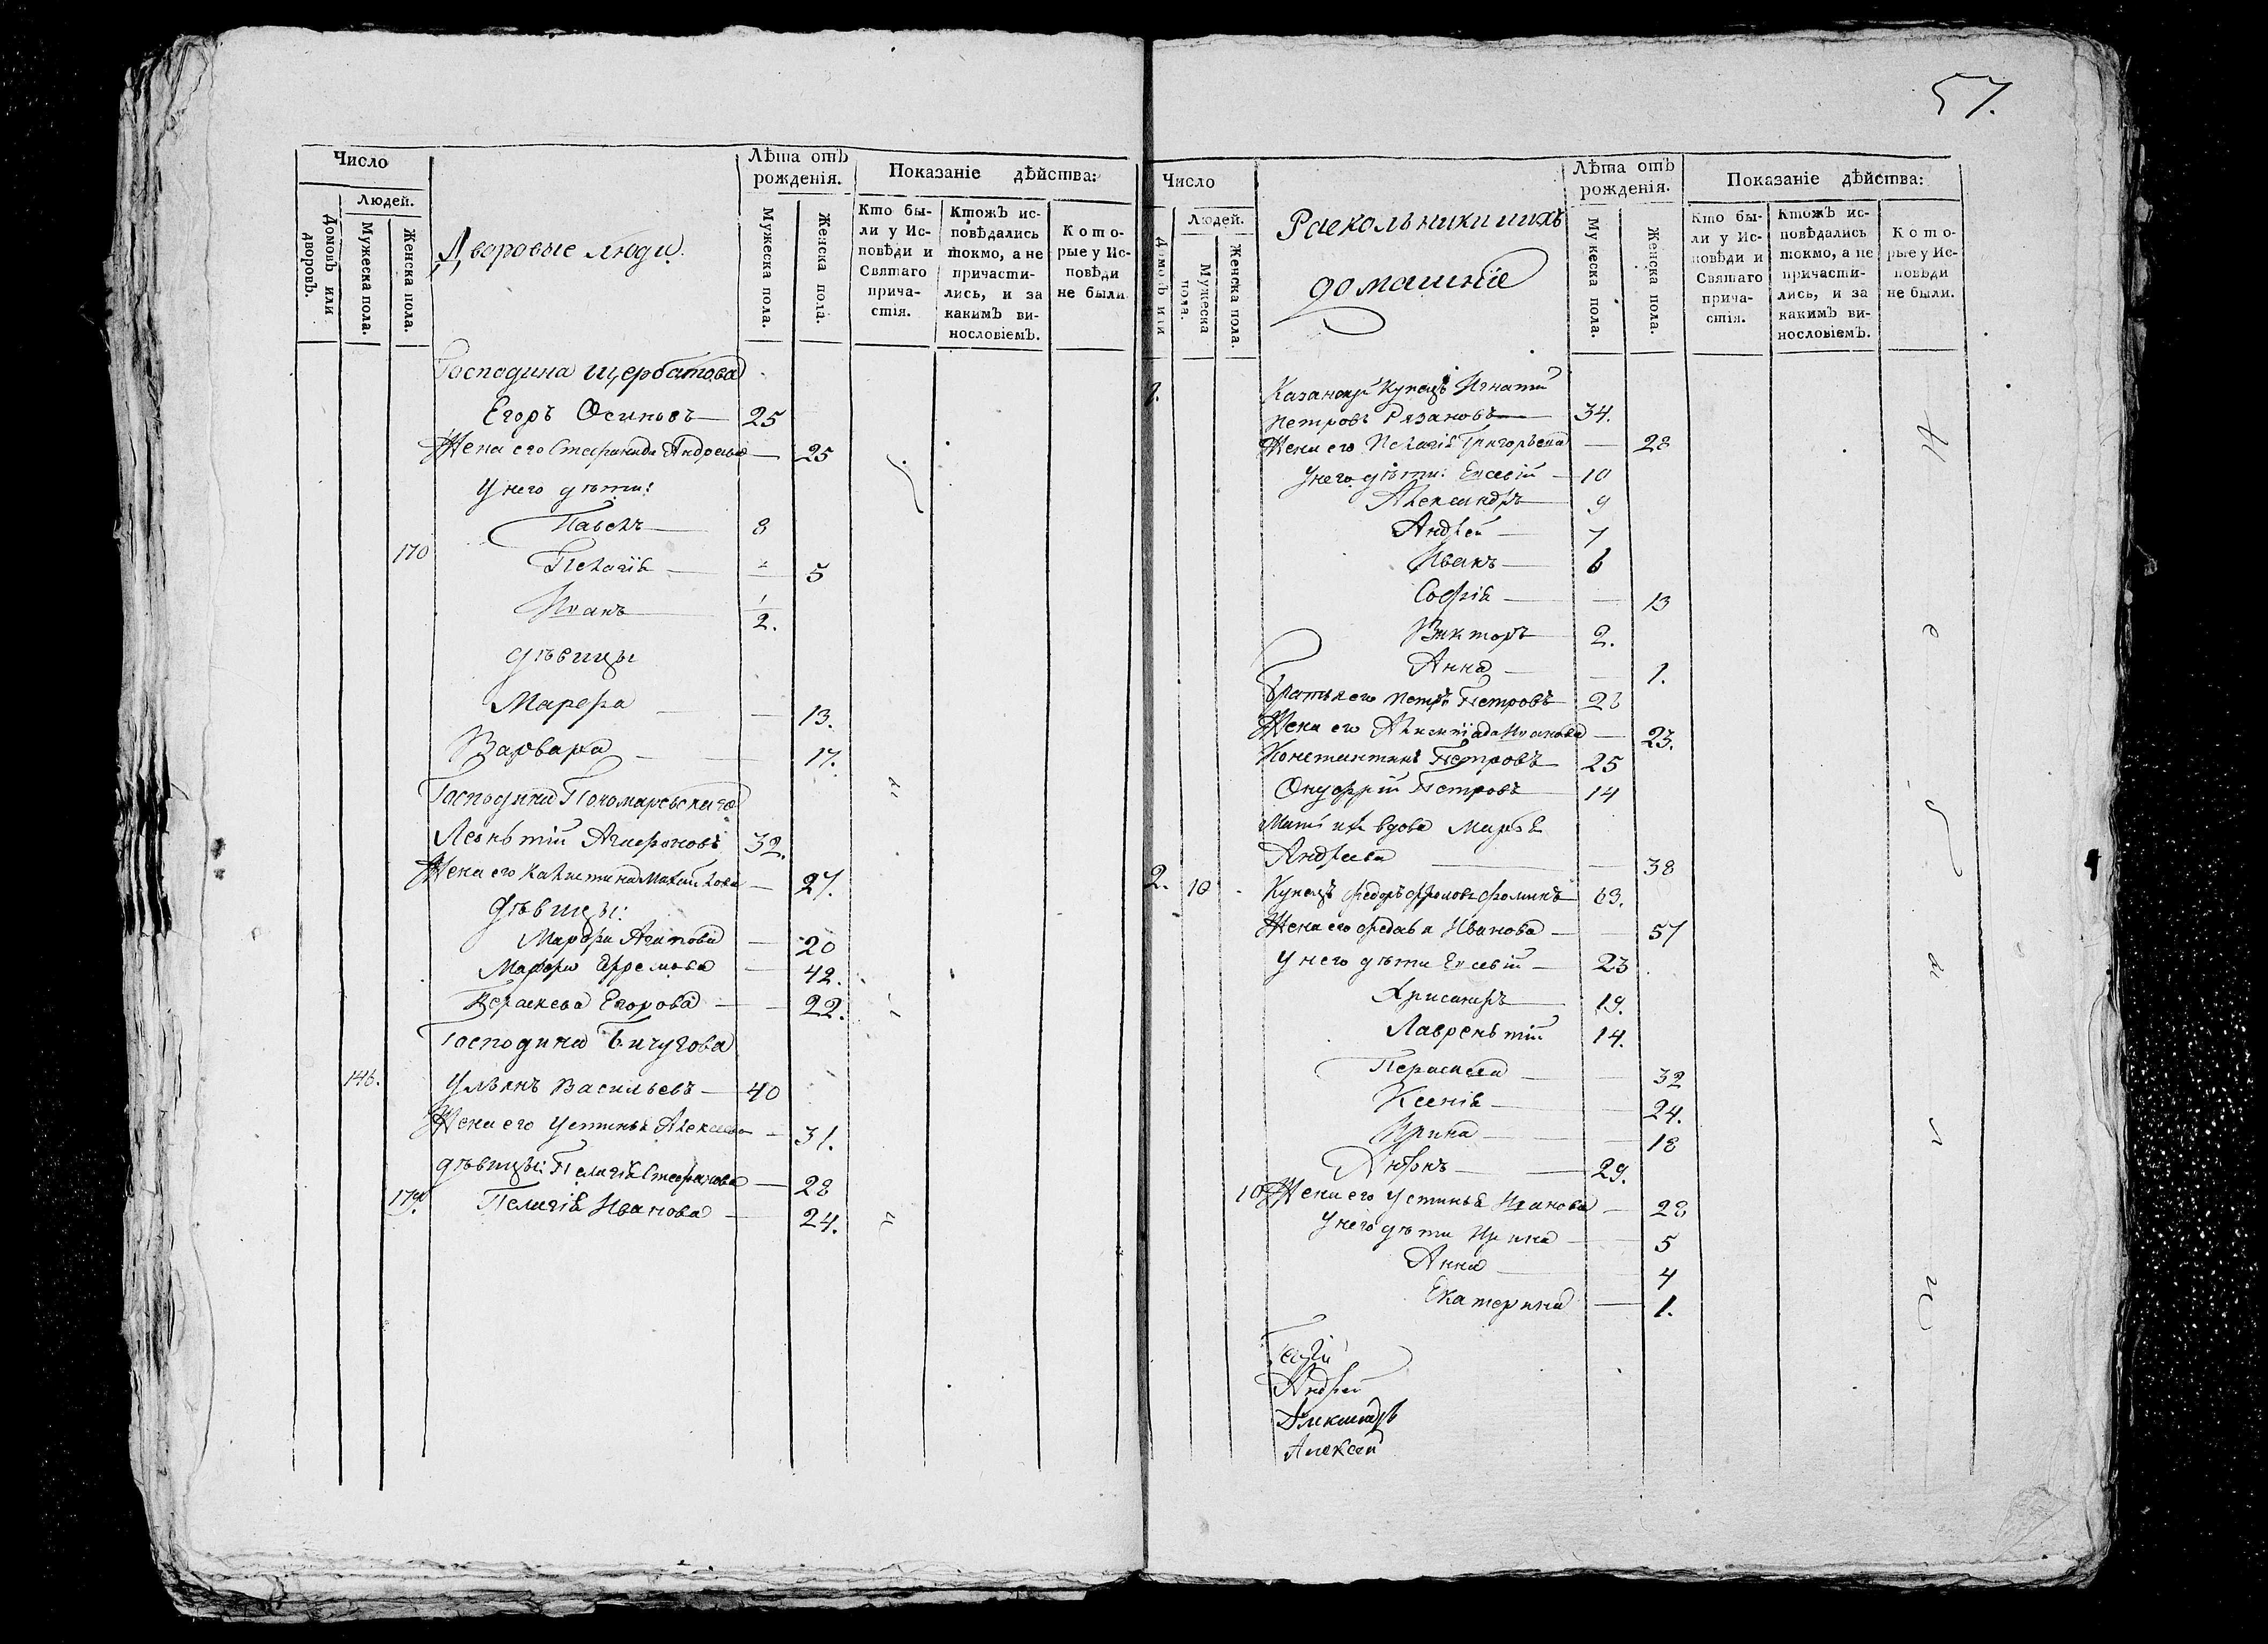 57.
Число
Людей.
Домовъ или дворовъ.
Мужеска пола.
Женска пола.
Дворовые люди.
Лѣта отъ рожденія.
Мужеска пола.
Женска пола.
Показаніе дѣйства:
Кто были у Исповѣди и Святаго причастія.
Ктожъ исповѣдались токмо, а не причастились, и за какимъ винословіемъ.
Которые у Исповѣди не были.
Господина Щербатова
Егоръ Осиповъ 25
Жена его Стефанида Андреева 25
У него дѣти:
Павелъ 8
170 Пелагія 5
Иванъ 1/2.
дѣвицы
Марфа 13.
Варвара 17.
Господина Пономаревскаго
Леонтій Агафоновъ 32.
Жена его Калистина Михайлова 27.
дѣвицы:
Марфа Агапова 20
Марфа Ефремова 42.
Параскева Егорова 22.
Господина Бичугова
146. Ульянъ Васильевъ 40
Жена его Устинья Алексеева 31.
дѣвицы: Пелагія Стефанова 28
179. Пелагія Иванова 24.
Число
Людей.
Домовъ или
Мужеска пола.
Женска пола.
Раскольники и ихъ
домашніе
Лѣта отъ рожденія.
Мужеска пола.
Женска пола.
Показаніе дѣйства:
Кто были у Исповѣди и Святаго причастія.
Ктожъ исповѣдались токмо, а не причастились, и за какимъ винословіемъ.
Которые у Исповѣди не были.
1. Казанскій Купецъ Игнатій
Петровъ Рязановъ 34.
Жена его Пелагія Григорьева 28
У него дѣти: Евсевій 10
Александръ 9
Андрей 7
Иванъ 6
Софія 13
Викторъ 2.
Анна 1.
Братья его Петръ Петровъ 28
Жена его Иванова 23.
Константинъ Петровъ 25
Онуфрій Петровъ 14
Мать ихъ вдова Марья
Андреева 38
2. 10 Купецъ Федоръ Фроловъ Фоминъ 63.
Жена его Федосья Иванова 57
У него дѣти Евсевій 23
Хрисанфъ 19.
Лаврентій 14.
Параскева 32
Ксенія 24.
Ирина 18
29.
10 Жена его Устинья Иванова 28
У него дѣти Ирина 5
Анна 4
Екатерина 1.
Андрей
Александръ
Алексей
Не были